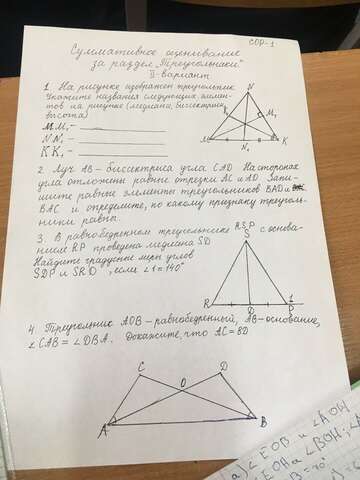 СОР-1
Суммативное оценивание
за раздел "Треугольники"
II-вариант
1. На рисунке изображен треугольник
Укажите названия следующих элемен-
тов на рисунке (медиана, биссектриса,
высота)
MM₁ -
NN₁ -
KK₁ -
N
M₁
M
N₁
K
2. Луч AB - биссектриса угла CAD На сторонах
угла отложены равные отрезки AC и AD. Запи-
шите равные элементы треугольников BAD и
BAC и определите, по какому признаку треуголь-
ники равны.
3. В равнобедренном треугольнике RSP с основа-
нием RP проведена медиана SD
Найдите градусные меры углов
SDP и SRD, если ∠1=140°
S
R
D
1
P
4. Треугольник AOB - равнобедренный, AB-основание,
∠CAB = ∠DBA. Докажите, что AC=BD
C
D
O
A
B